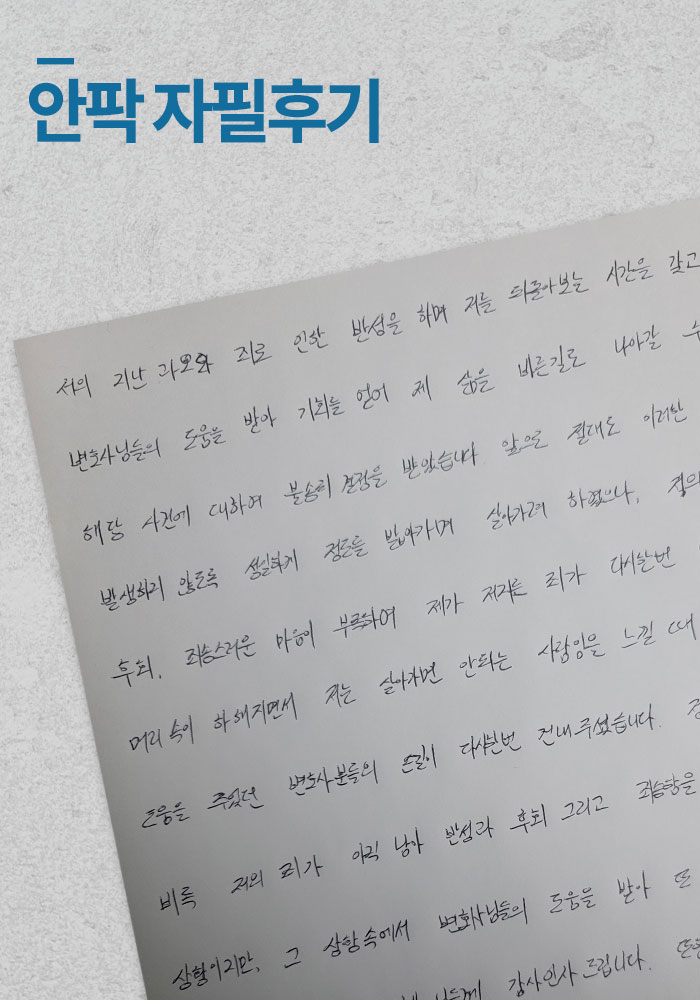 안팍 자필후기
저의 지난 과오와 죄로 인한 반성을 하며 저를 되돌아보는 시간을 갖고
변호사님들의 도움을 받아 기회를 얻어 제 삶을 바른길로 나아갈 수
해당 사건에 대하여 불송치 결정을 받았습니다. 앞으로 절대로 이러한
발생하지 않도록 성실하게 정도를 밟아가며 살아가려 하였으나,
후회, 죄송스러운 마음이 부족하여 제가 저지른 죄가 다시한번
머리속이 하얘지면서 저는 살아가면 안되는 사람임을 느낄 때
도움을 주었던 변호사분들의 손길이 다시한번 건내주셨습니다.
비록 저의 죄가 아직 남아 반성과 후회 그리고 죄송함을
상황이지만, 그 상황속에서 변호사님들의 도움을 받아 또
감사인사 드립니다. 또한